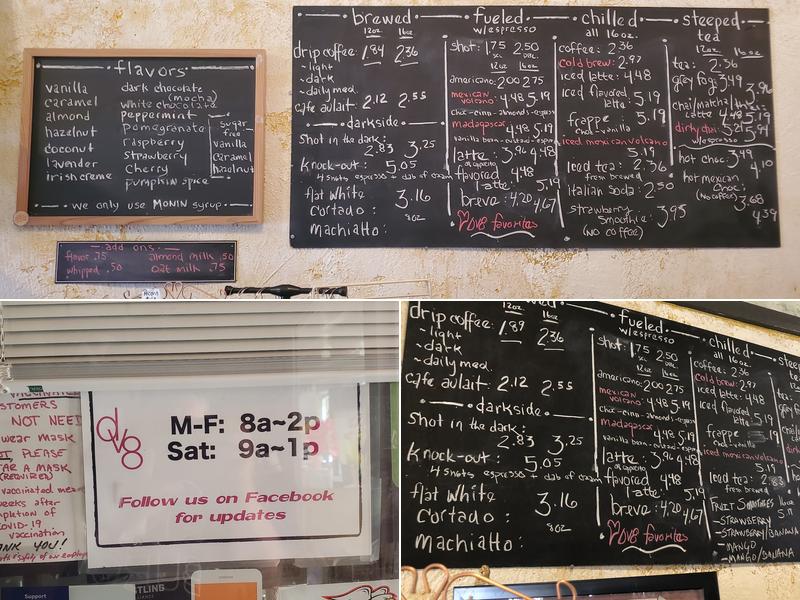 flavors
vanilla
caramel
almond
hazelnut
coconut
lavender
irish creme
dark chocolate
(mocha)
white chocolate
peppermint
pomegranate
raspberry
strawberry
cherry
pumpkin spice
sugar
free
vanilla
caramel
hazelnut
we only use MONIN syrup
add ons
flavor .75 almond milk .50
whipped .50 oat milk .75
brewed
12oz 16oz
drip coffee: 1.89 2.36
~light
~dark
~daily med.
cafe aulait: 2.12 2.55
darkside
shot in the dark:
2.83 3.25
knock-out: 5.05
4 shots espresso + dab of cream
flat white
cortado: 3.16
machiatto: 8oz
fueled
w/espresso
shot: 1.75 2.50
12oz 16oz
americano: 2.00 2.75
mexican
volcano: 4.48 5.19
madagascar
4.48 5.19
latte: 3.96 4.48
flavored 4.48
latte: 5.19
breve: 4.20 4.67
love favorites
chilled
all 16oz.
coffee: 2.36
cold brew: 2.97
iced latte: 4.48
iced flavored
latte: 5.19
frappe: 5.19
iced mexican volcano
5.19
iced tea: 2.36
fresh brewed
italian soda: 2.50
strawberry
smoothie: 3.95
(NO coffee)
steeped
tea
12oz 16oz
tea: 2.36
grey fog: 3.49 3.96
chai/matcha/thai:
latte 4.48 5.19
dirty chai: 5.21 5.94
w/espresso
hot choc: 3.49
4.10
hot mexican
choc:
(NO coffee) 3.68
4.39
STOMERS
NOT NEED
wear mask
PLEASE
EAR A MASK
(REQUIRED)
vaccinated means
weeks after
completion of
COVID-19
vaccination
THANK YOU!
dv8
M-F: 8a~2p
Sat: 9a~1p
Follow us on Facebook
for updates
Support
12oz 16oz
drip coffee: 1.89 2.36
~light
~dark
~daily med.
cafe aulait: 2.12 2.55
darkside
shot in the dark:
2.83 3.25
knock-out: 5.05
4 shots espresso + dab of cream
flat white
cortado: 3.16
machiatto: 8oz
fueled
w/espresso
shot: 1.75 2.50
12oz 16oz
americano: 2.00 2.75
mexican
volcano: 4.48 5.19
madagascar
4.48 5.19
latte: 3.96 4.48
flavored 4.48
latte: 5.19
breve: 4.20 4.67
love favorites
chilled
all 16oz.
coffee: 2.36
cold brew: 2.97
iced latte: 4.48
iced flavored
latte: 5.19
frappe: 5.19
iced mexican volcano
5.19
iced tea: 2.83
fresh brewed
FRUIT SMOOTHIES 16oz
~STRAWBERRY
~STRAWBERRY/BANANA
~MANGO
~MANGO/BANANA